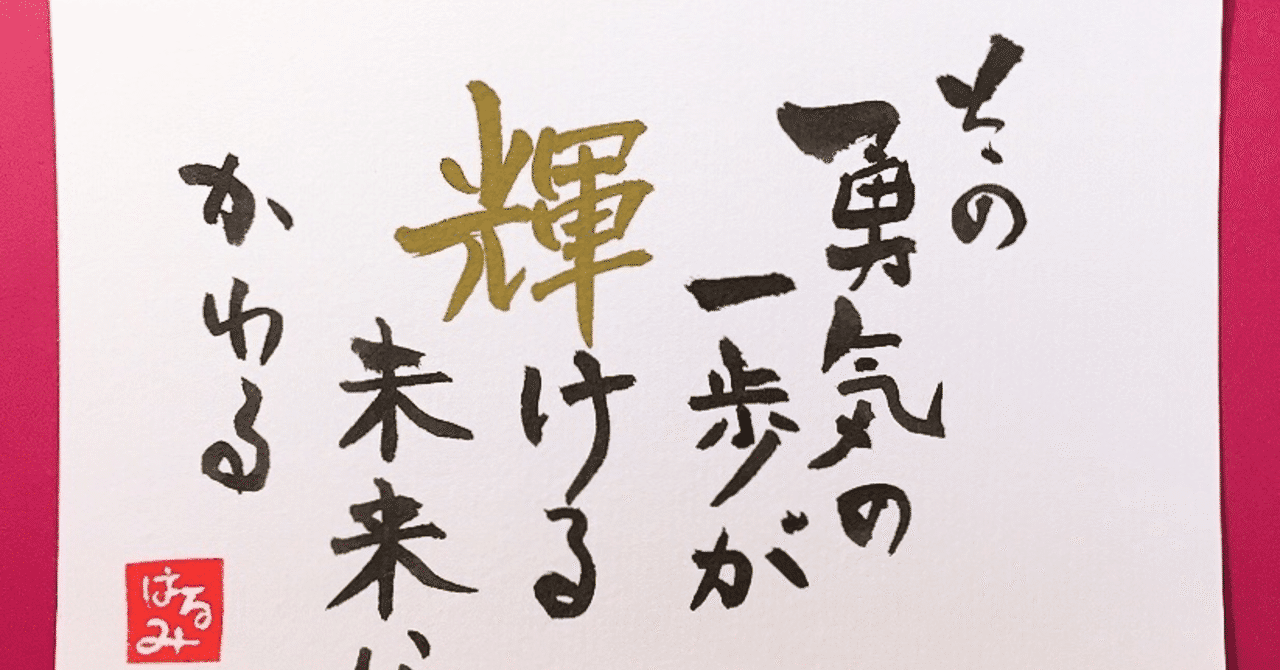 その
勇気の
一歩が
輝ける
未来
かわる
はるみ